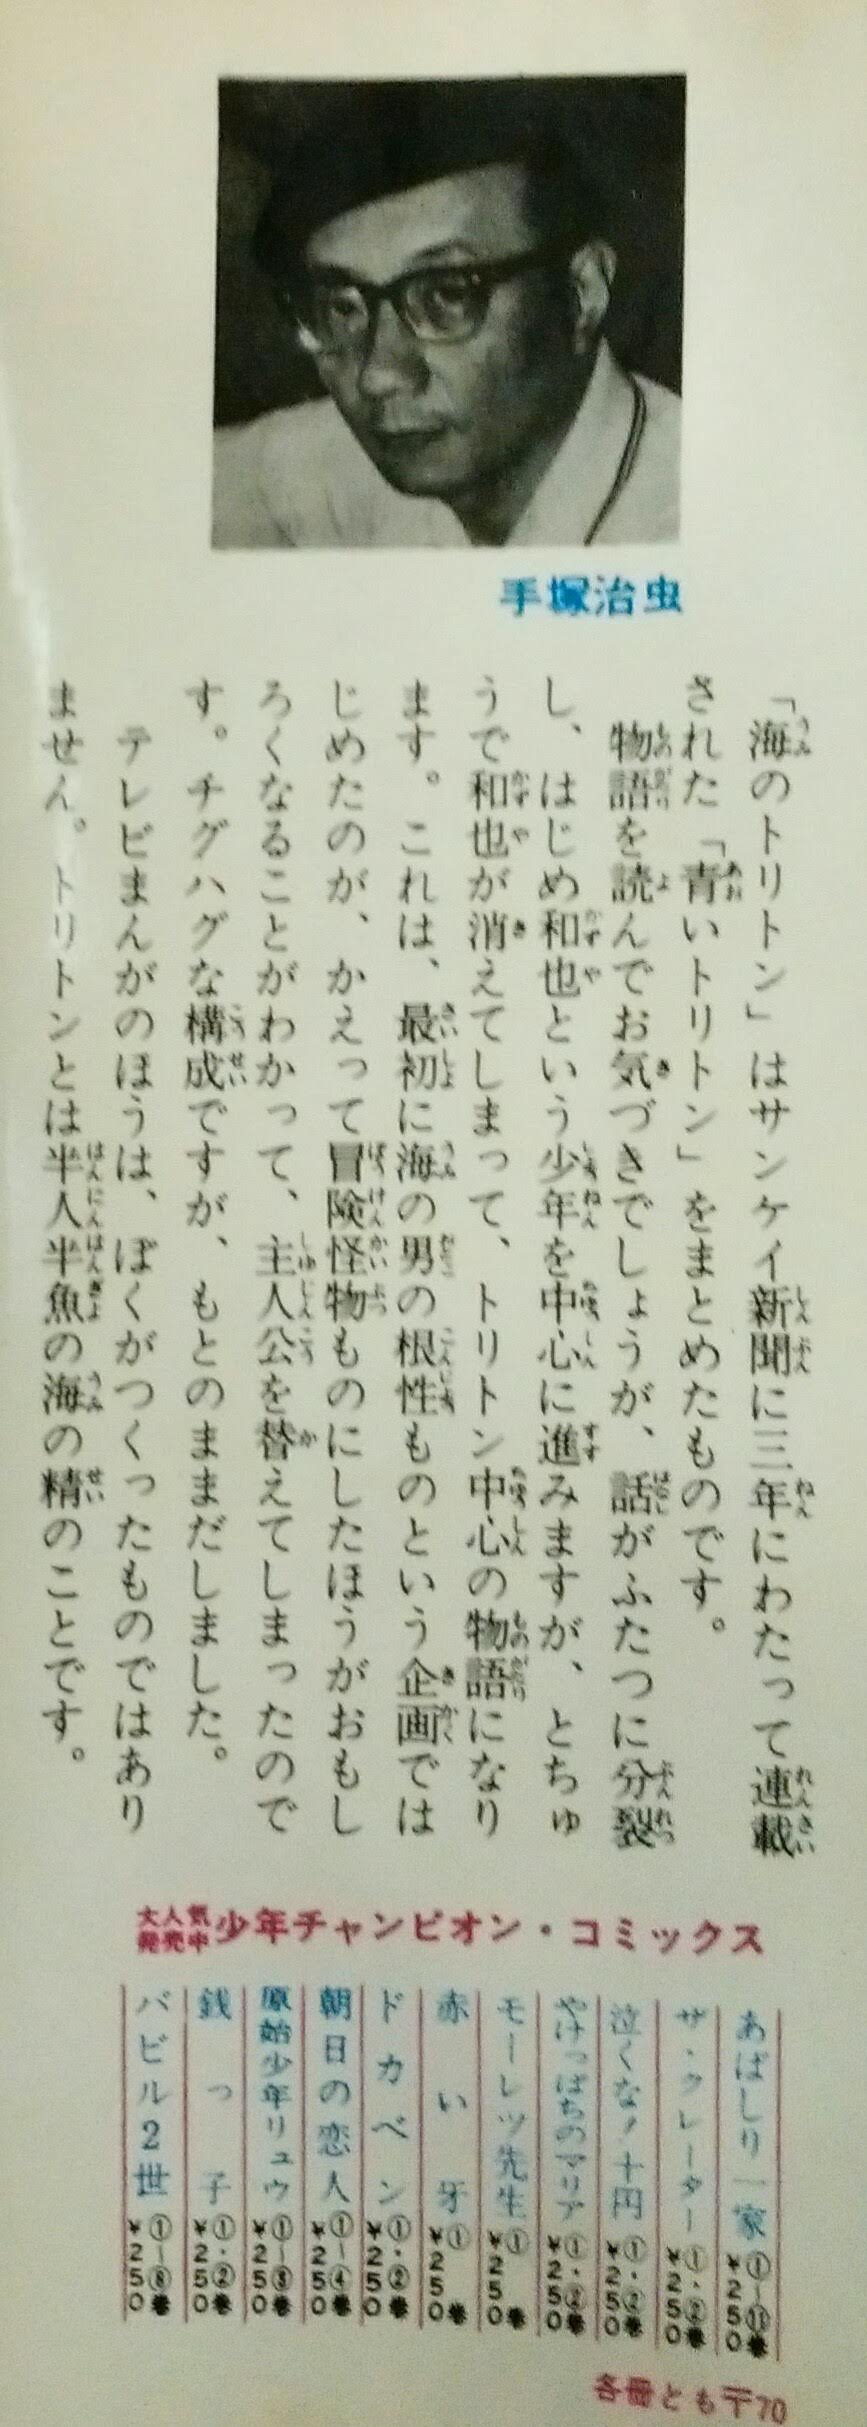 手塚治虫
「海のトリトン」はサンケイ新聞に三年にわたって連載
された「青いトリトン」をまとめたものです。
物語を読んでお気づきでしょうが、話がふたつに分裂
し、はじめ和也という少年を中心に進みますが、とちゅ
うで和也が消えてしまって、トリトン中心の物語になり
ます。これは、最初に海の男の根性ものという企画では
じめたのが、かえって冒険怪物ものにしたほうがおもし
ろくなることがわかって、主人公を替えてしまったので
す。チグハグな構成ですが、もとのままだしました。
テレビまんがのほうは、ぼくがつくったものではあり
ません。トリトンとは半人半魚の海の精のことです。
大人気発売中 少年チャンピオン・コミックス
あばしり一家 ①–⑪巻 ¥250
ザ・クレーター ①・②巻 ¥250
泣くな!十円 ①・②巻 ¥250
やけっぱちのマリア ①・②巻 ¥250
モーレツ先生 ①巻 ¥250
赤い牙 ①巻 ¥250
ドカベン ①・②巻 ¥250
朝日の恋人 ①–④巻 ¥250
原始少年リュウ ①–③巻 ¥250
銭っ子 ①・②巻 ¥250
バビル2世 ①–⑧巻 ¥250
各冊とも〒70